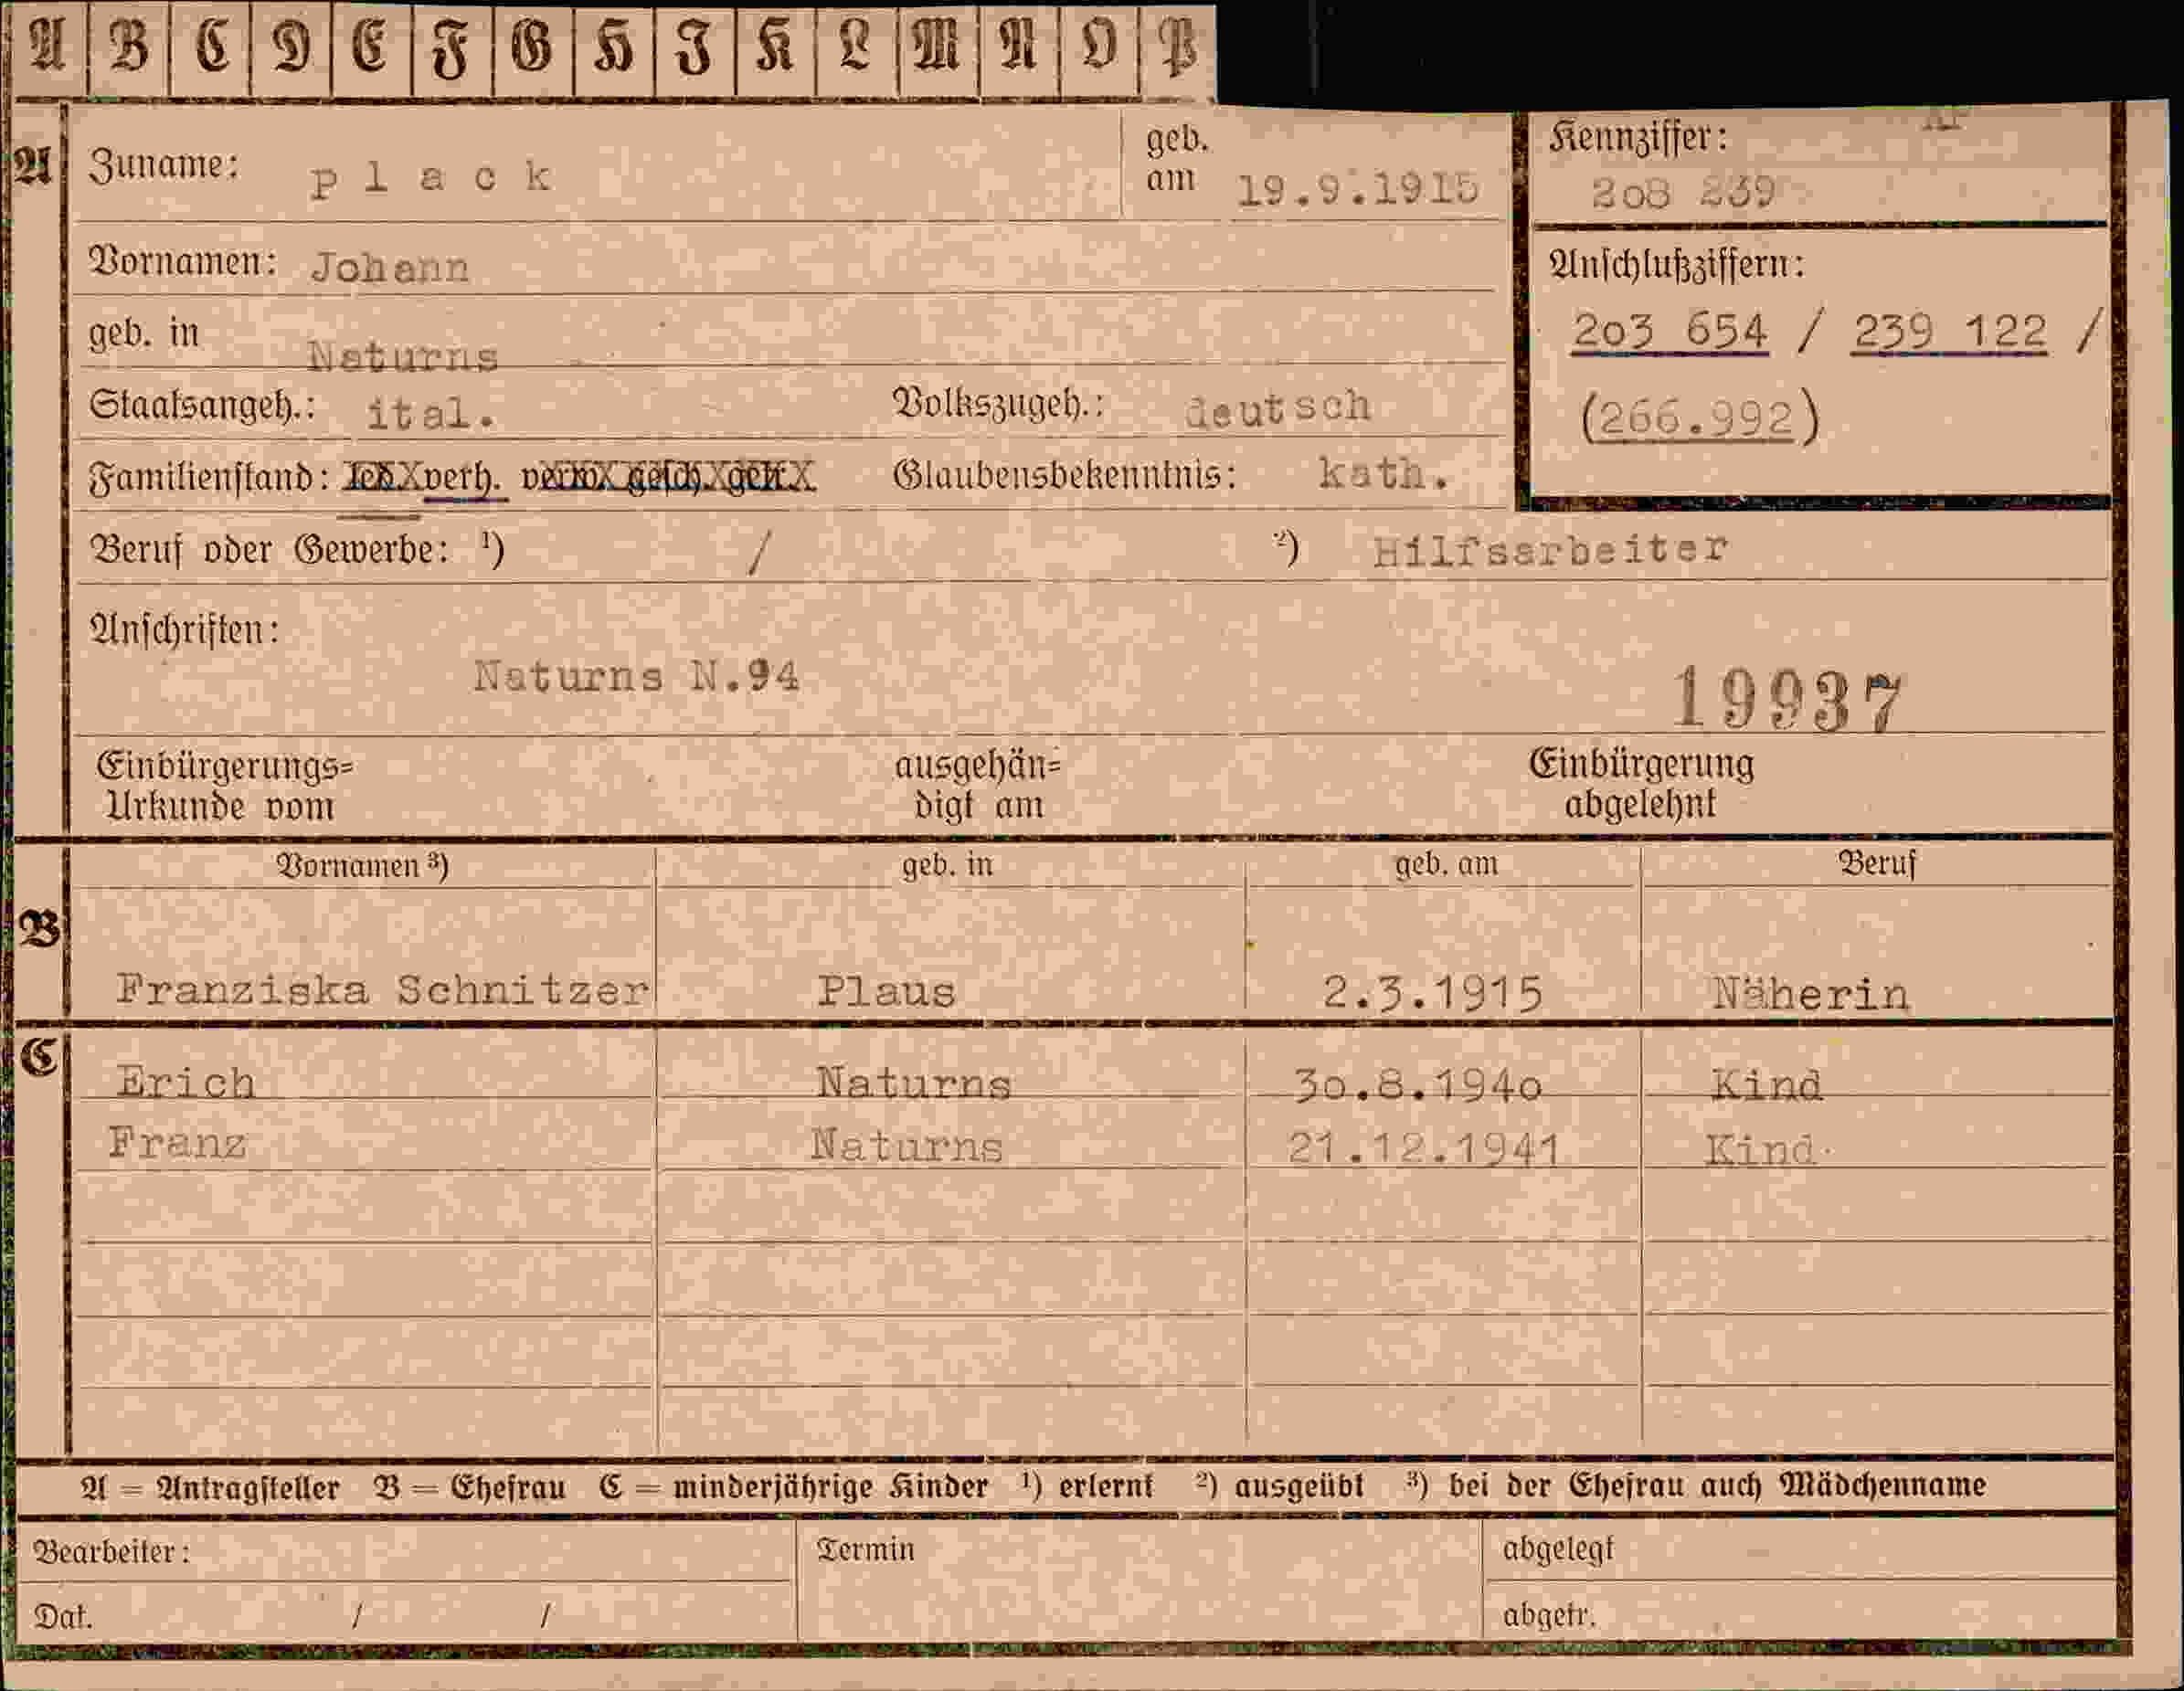 A B C D E F G H J K L M N O P
A Zuname: p l a c k geb. am 19.9.1915 Kennziffer: 208 239
Vornamen: Johann Anschlußziffern:
geb. in Naturns 203 654 / 239 122 /
Staatsangeh.: ital. Volkszugeh.: deutsch (266.992)
Familienstand: led. verh. verw. gesch. getr. Glaubensbekenntnis: kath.
Beruf oder Gewerbe: ¹) / ²) Hilfsarbeiter
Anschriften:
Naturns N.94 19937
Einbürgerungs= ausgehän= Einbürgerung
Urkunde vom digt am abgelehnt
Vornamen ³) geb. in geb. am Beruf
B
Franziska Schnitzer Plaus 2.3.1915 Näherin
C Erich Naturns 30.8.1940 Kind
Franz Naturns 21.12.1941 Kind
A = Antragsteller B = Ehefrau C = minderjährige Kinder ¹) erlernt ²) ausgeübt ³) bei der Ehefrau auch Mädchenname
Bearbeiter: Termin abgelegt
Dat. / / abgetr.